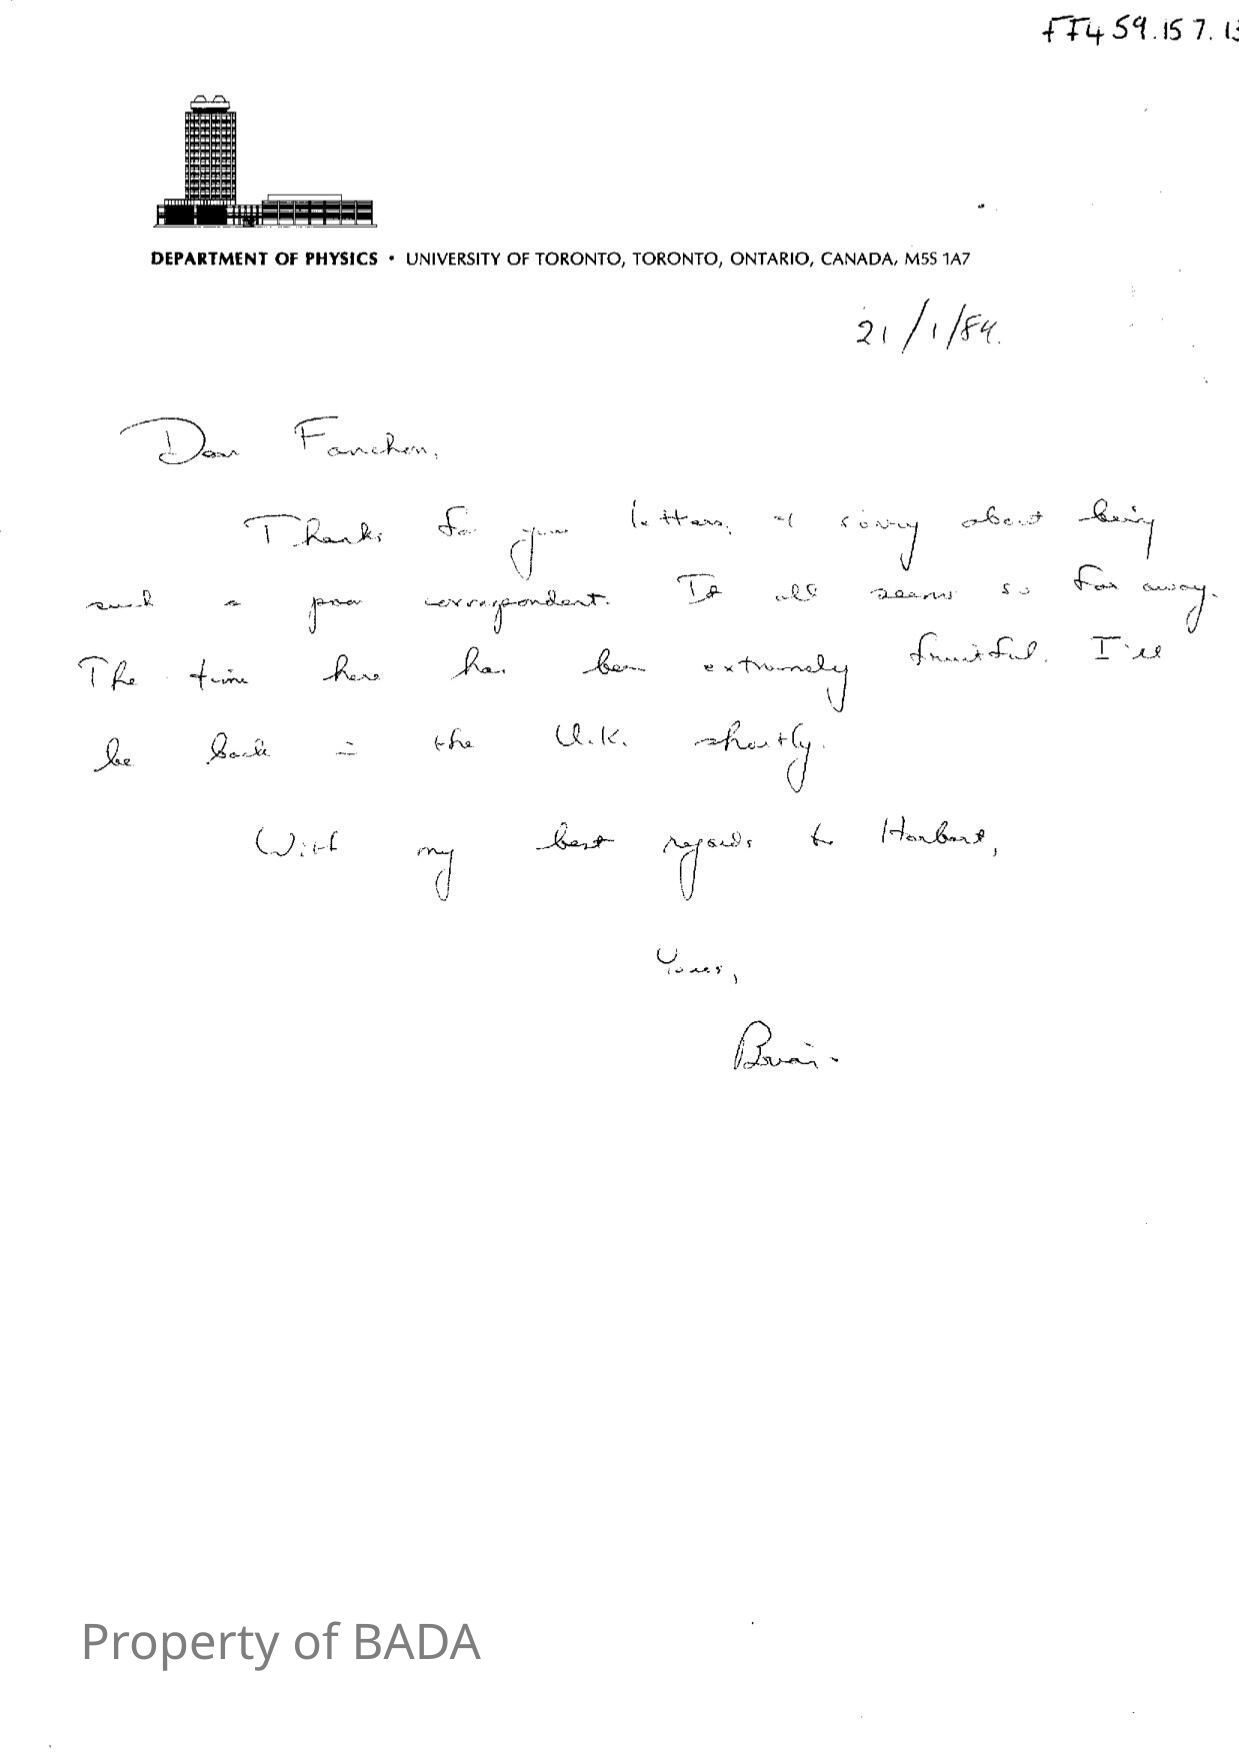 FF4 59.15 7. 13
DEPARTMENT OF PHYSICS • UNIVERSITY OF TORONTO, TORONTO, ONTARIO, CANADA, M5S 1A7
21/1/84.
Dear Fanchon,
Thanks for your letters, & sorry about being
such a poor correspondent. It all seems so far away.
The time here has been extremely fruitful. I'll
be back in the U.K. shortly.
With my best regards to Herbert,
Yours,
Brian.
Property of BADA